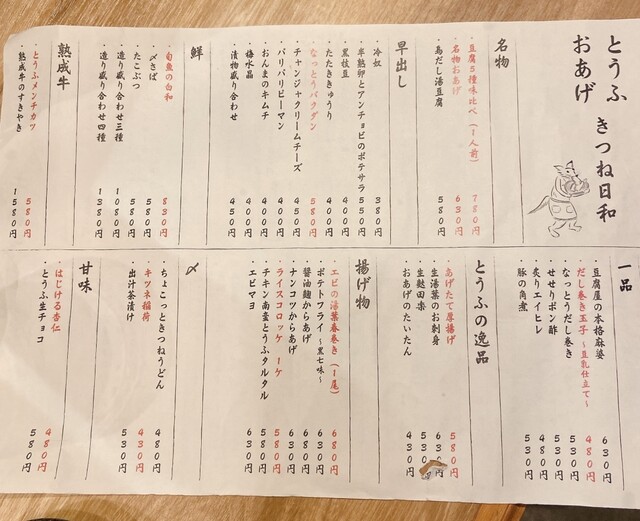 とうふ
おあげ きつね日和
名物
・豆腐5種味比べ(1人前) 780円
・名物おあげ 630円
・鳥だし湯豆腐 580円
早出し
・冷奴 380円
・半熟卵とアンチョビのポテサラ 550円
・黒枝豆 400円
・たたききゅうり 400円
・なっとうバクダン 580円
・チャンジャクリームチーズ 450円
・パリパリピーマン 400円
・おんまのキムチ 400円
・梅水晶 400円
・漬物盛り合わせ 450円
鮮
・旬魚の白和 830円
・〆さば 580円
・たこぶつ 580円
・造り盛り合わせ三種 1080円
・造り盛り合わせ四種 1380円
熟成牛
・とうふメンチカツ 580円
・熟成牛のすきやき 1580円
一品
・豆腐屋の本格麻婆 630円
・だし巻き玉子~豆乳仕立て~ 480円
・なっとうだし巻き 530円
・せせりポン酢 530円
・炙りエイヒレ 480円
・豚の角煮 530円
とうふの逸品
・あげたて厚揚げ 580円
・生湯葉のお刺身
・生麩田楽 530円
・おあげのたいたん 430円
揚げ物
・エビの湯葉春巻き(1尾) 680円
・ポテトフライ~黒七味~
・醤油麹からあげ 630円
・ナンコツからあげ
・ライスコロッケ 1ケ 580円
・チキン南蛮とうふタルタル
・エビマヨ 630円
〆
・ちょこっときつねうどん 480円
・キツネ稲荷 430円
・出汁茶漬け 530円
甘味
・はじける杏仁 480円
・とうふ生チョコ 580円